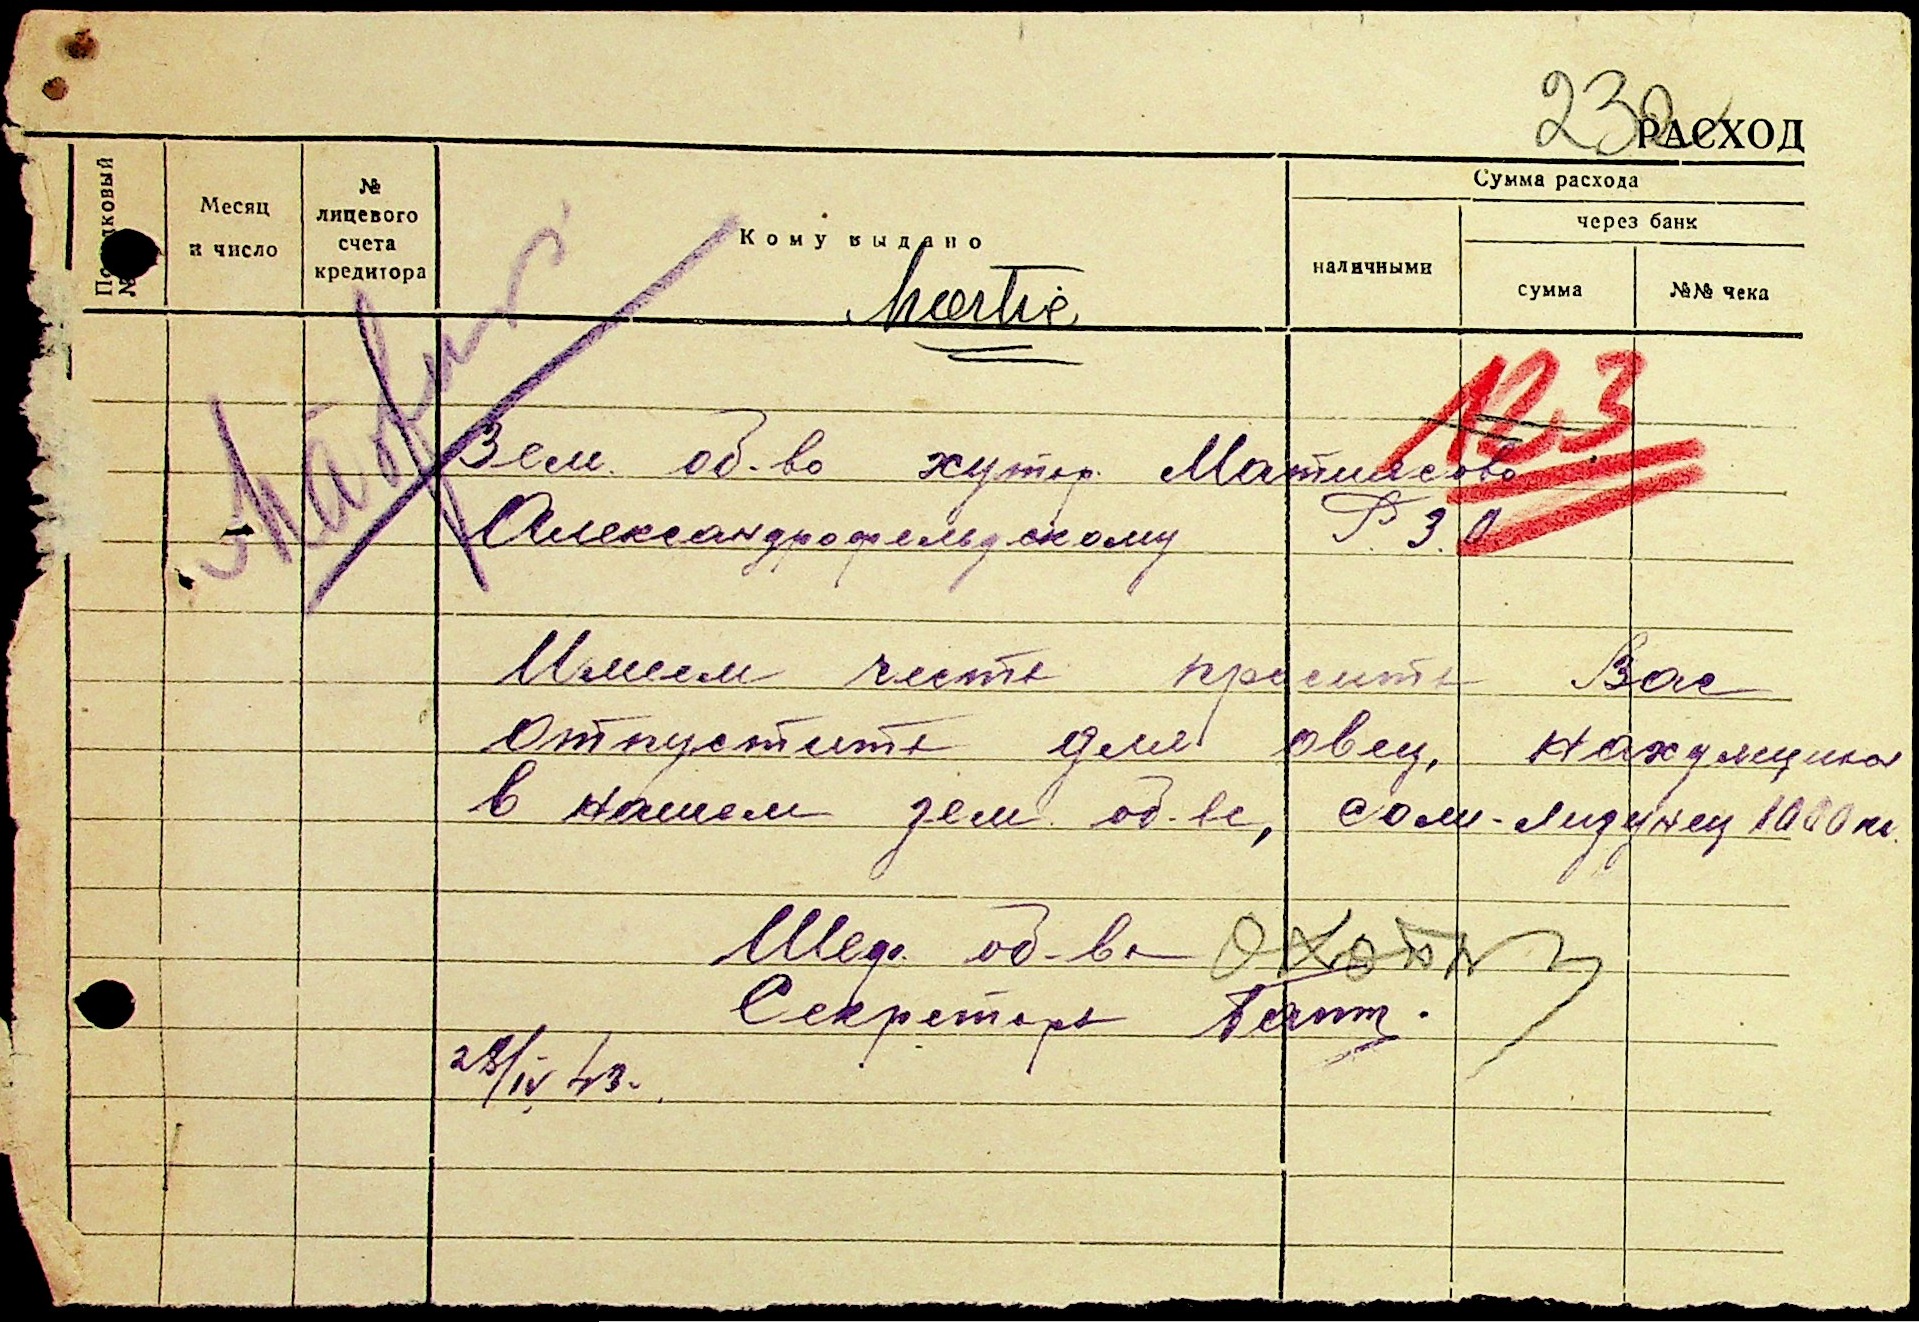 232
РАСХОД
Порядковый №
Месяц и число
№ лицевого счета кредитора
Кому выдано
Сумма расхода
наличными
через банк
сумма
№№ чека
№ 3
Зем. об-во хутор. Матиясово
Александрофельдскому Р.З.О
Имеем честь просить Вас
отпустить для овец, находящихся
в нашем зем. об-ве, соли-лизунец 1000 кг.
Шеф. об-ва
Секретарь
28/IV 43.